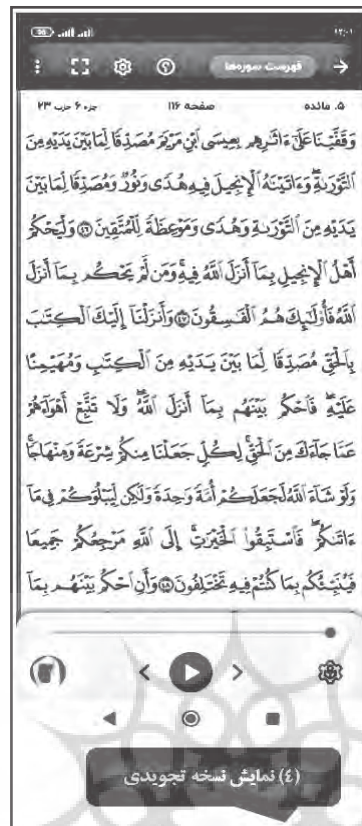 ۱۲:۰۱
فهرست سوره‌ها
۵. مائده صفحه ۱۱۶ جزء ۶ حزب ۲۳
وَقَفَّيْنَا عَلَىٰٓ ءَاثَٰرِهِم بِعِيسَى ٱبْنِ مَرْيَمَ مُصَدِّقًا لِّمَا بَيْنَ يَدَيْهِ مِنَ
ٱلتَّوْرَىٰةِ وَءَاتَيْنَٰهُ ٱلْإِنجِيلَ فِيهِ هُدًى وَنُورٌ وَمُصَدِّقًا لِّمَا بَيْنَ
يَدَيْهِ مِنَ ٱلتَّوْرَىٰةِ وَهُدًى وَمَوْعِظَةً لِّلْمُتَّقِينَ ۝٤٦ وَلْيَحْكُمْ
أَهْلُ ٱلْإِنجِيلِ بِمَآ أَنزَلَ ٱللَّهُ فِيهِ وَمَن لَّمْ يَحْكُم بِمَآ أَنزَلَ
ٱللَّهُ فَأُو۟لَٰٓئِكَ هُمُ ٱلْفَٰسِقُونَ ۝٤٧ وَأَنزَلْنَآ إِلَيْكَ ٱلْكِتَٰبَ
بِٱلْحَقِّ مُصَدِّقًا لِّمَا بَيْنَ يَدَيْهِ مِنَ ٱلْكِتَٰبِ وَمُهَيْمِنًا
عَلَيْهِ فَٱحْكُم بَيْنَهُم بِمَآ أَنزَلَ ٱللَّهُ وَلَا تَتَّبِعْ أَهْوَآءَهُمْ
عَمَّا جَآءَكَ مِنَ ٱلْحَقِّ لِكُلٍّ جَعَلْنَا مِنكُمْ شِرْعَةً وَمِنْهَاجًا
وَلَوْ شَآءَ ٱللَّهُ لَجَعَلَكُمْ أُمَّةً وَٰحِدَةً وَلَٰكِن لِّيَبْلُوَكُمْ فِى مَآ
ءَاتَىٰكُمْ فَٱسْتَبِقُوا۟ ٱلْخَيْرَٰتِ إِلَى ٱللَّهِ مَرْجِعُكُمْ جَمِيعًا
فَيُنَبِّئُكُم بِمَا كُنتُمْ فِيهِ تَخْتَلِفُونَ ۝٤٨ وَأَنِ ٱحْكُم بَيْنَهُم بِمَآ
(٤) نمایش نسخه تجویدی